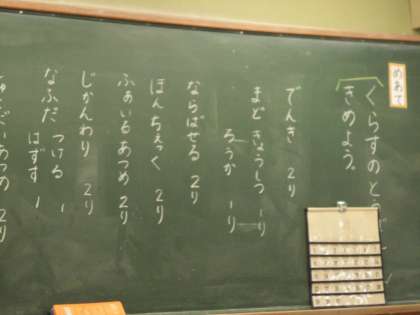 めあて
くらすのとう
きめよう。
でんき 2り
まど きょうしつ 1り
ろうか 1り
ならばせる 2り
ほんちぇっく 2り
ふぁいるあつめ 2り
じかんわり 2り
なふだ つける 1
はずす 1
あつめ 2り